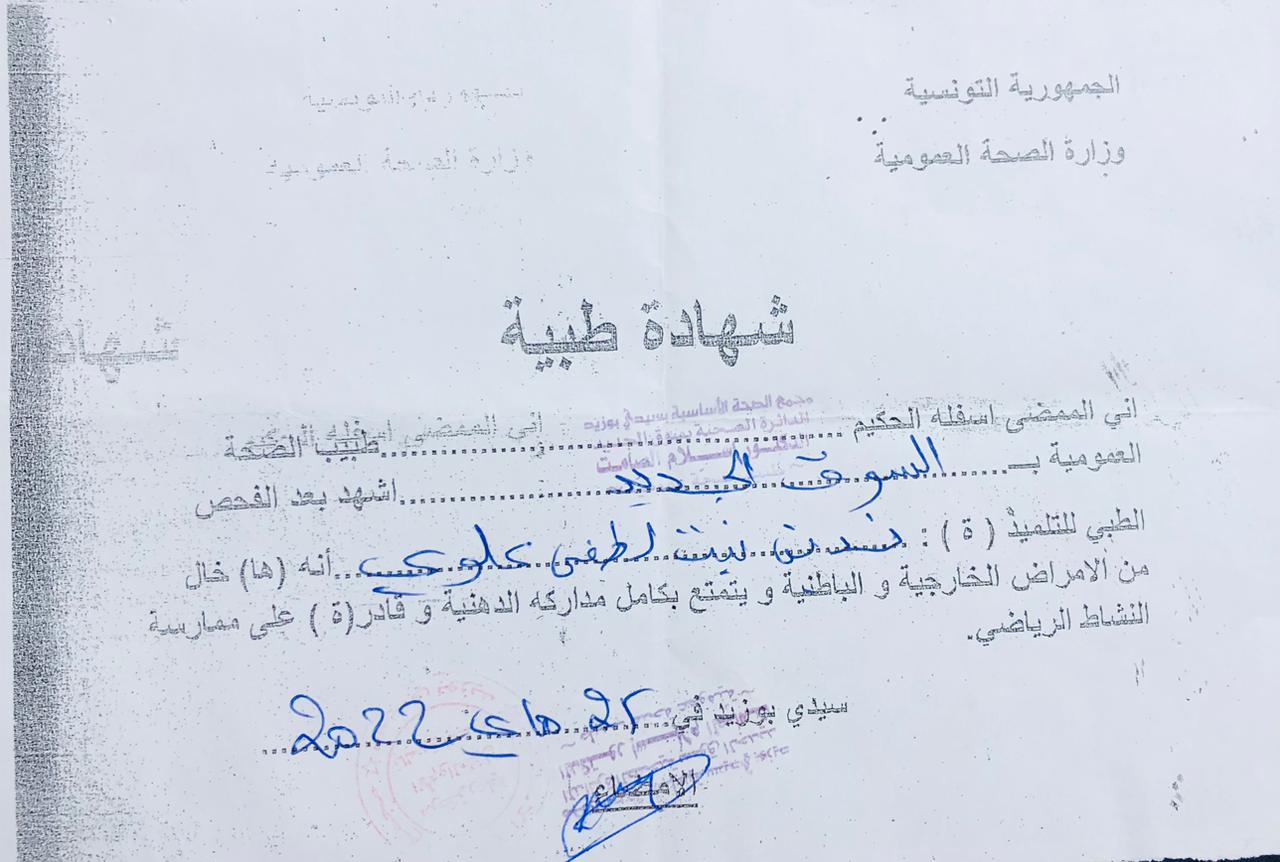 الجمهورية التونسية
وزارة الصحة العمومية
وزارة الصحة العمومية
شهادة طبية
شهاد
مجمع الصحة الأساسية بسيدي بوزيد
الدائرة الصحية بسوق الجديد
الدكتور إسلام الصامت
اني الممضى اسفله الحكيم ........ طبيب الصحة
العمومية بـ ..... السوق الجديد ..... اشهد بعد الفحص
الطبي للتلميذ ( ة ) : بنت لطفي علوي ..... أنه (ها) خال
من الامراض الخارجية و الباطنية و يتمتع بكامل مداركه الدهنية و قادر(ة ) على ممارسة
النشاط الرياضي.
سيدي بوزيد في ماي 2022
الإمضاء